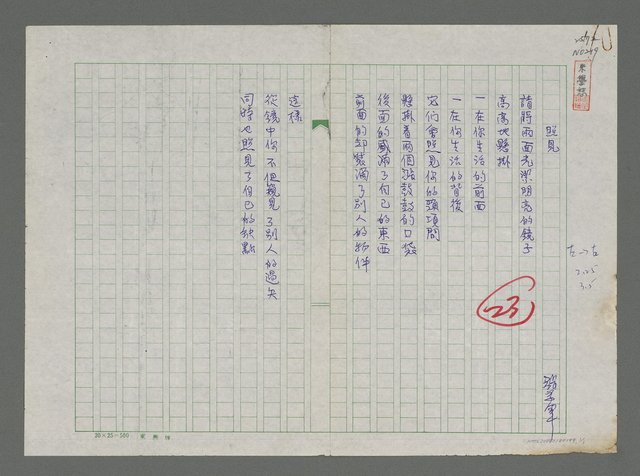 照見
請將兩面光潔明亮的鏡子
高高地懸掛
一在你生活的前面
一在你生活的背後
它們會照見你的頸項間
懸掛着兩個鼓鼓的口袋
後面的盛滿了自己的東西
前面的卻裝滿了別人的物件
這樣
從鏡中你不但窺見了別人的過失
同時也照見了自己的缺點
23
20×25=500